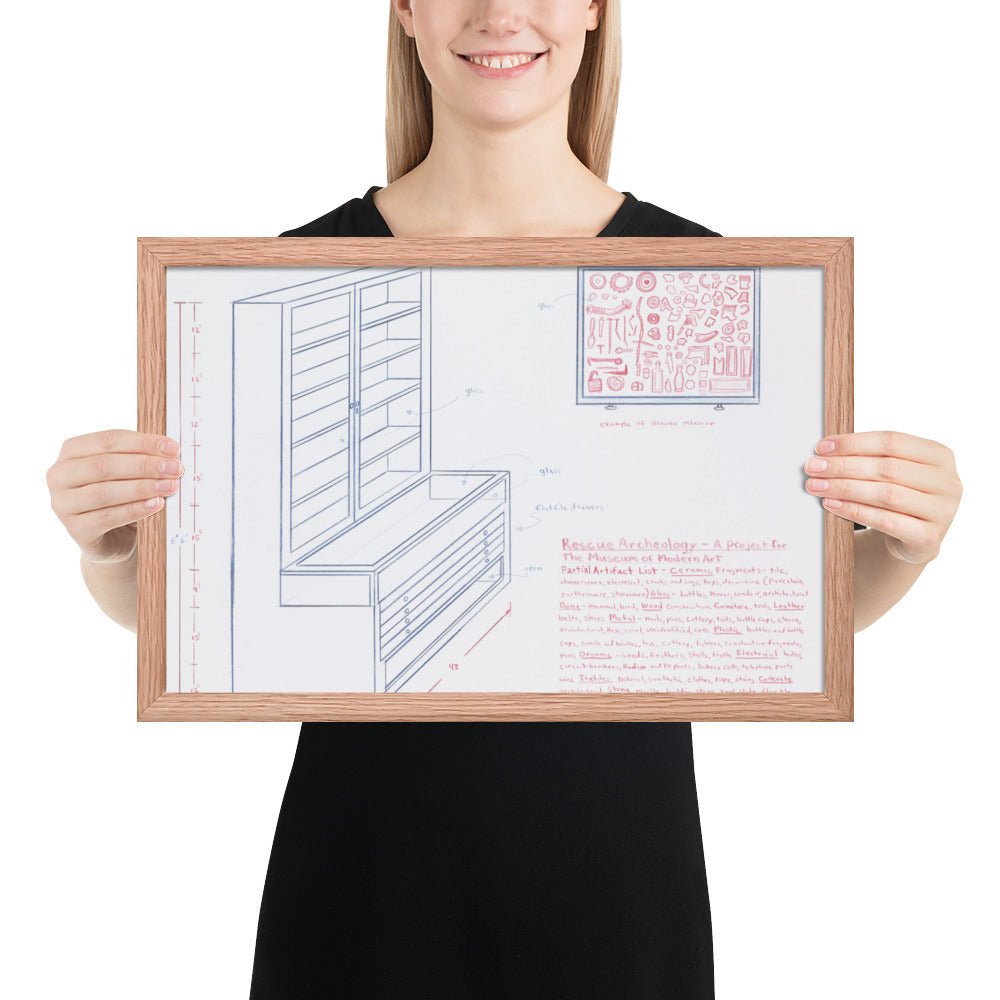 12"
glass
12"
glass
example of drawer interior
12"
glass
15"
flatfile drawers
6' 6" 15"
open
15"
48
Rescue Archeology - A Project for
The Museum of Modern Art
Partial Artifact List - Ceramic Fragments - tile,
dinnerware, electrical, crocks and jugs, toys, decorative (Porcelain,
earthenware, stoneware) Glass - bottles, mirror, window, architectural
Bone - mammal, bird, Wood construction, furniture, tools, Leather
belts, shoes Metal - nails, pipes, cutlery, tools, bottle caps, chain,
architectural, keys, coins, unidentified, cans Plastic bottles and bottle
caps, combs and brushes, toys, cutlery, lighters, construction fragments,
pens Organic - seeds, feathers, shells, teeth Electrical bulbs,
circuit breakers, Radio and TV parts, battery cells, telephone parts
wire Textiles Natural, synthetic, clothes, rope, string Concrete
Stone